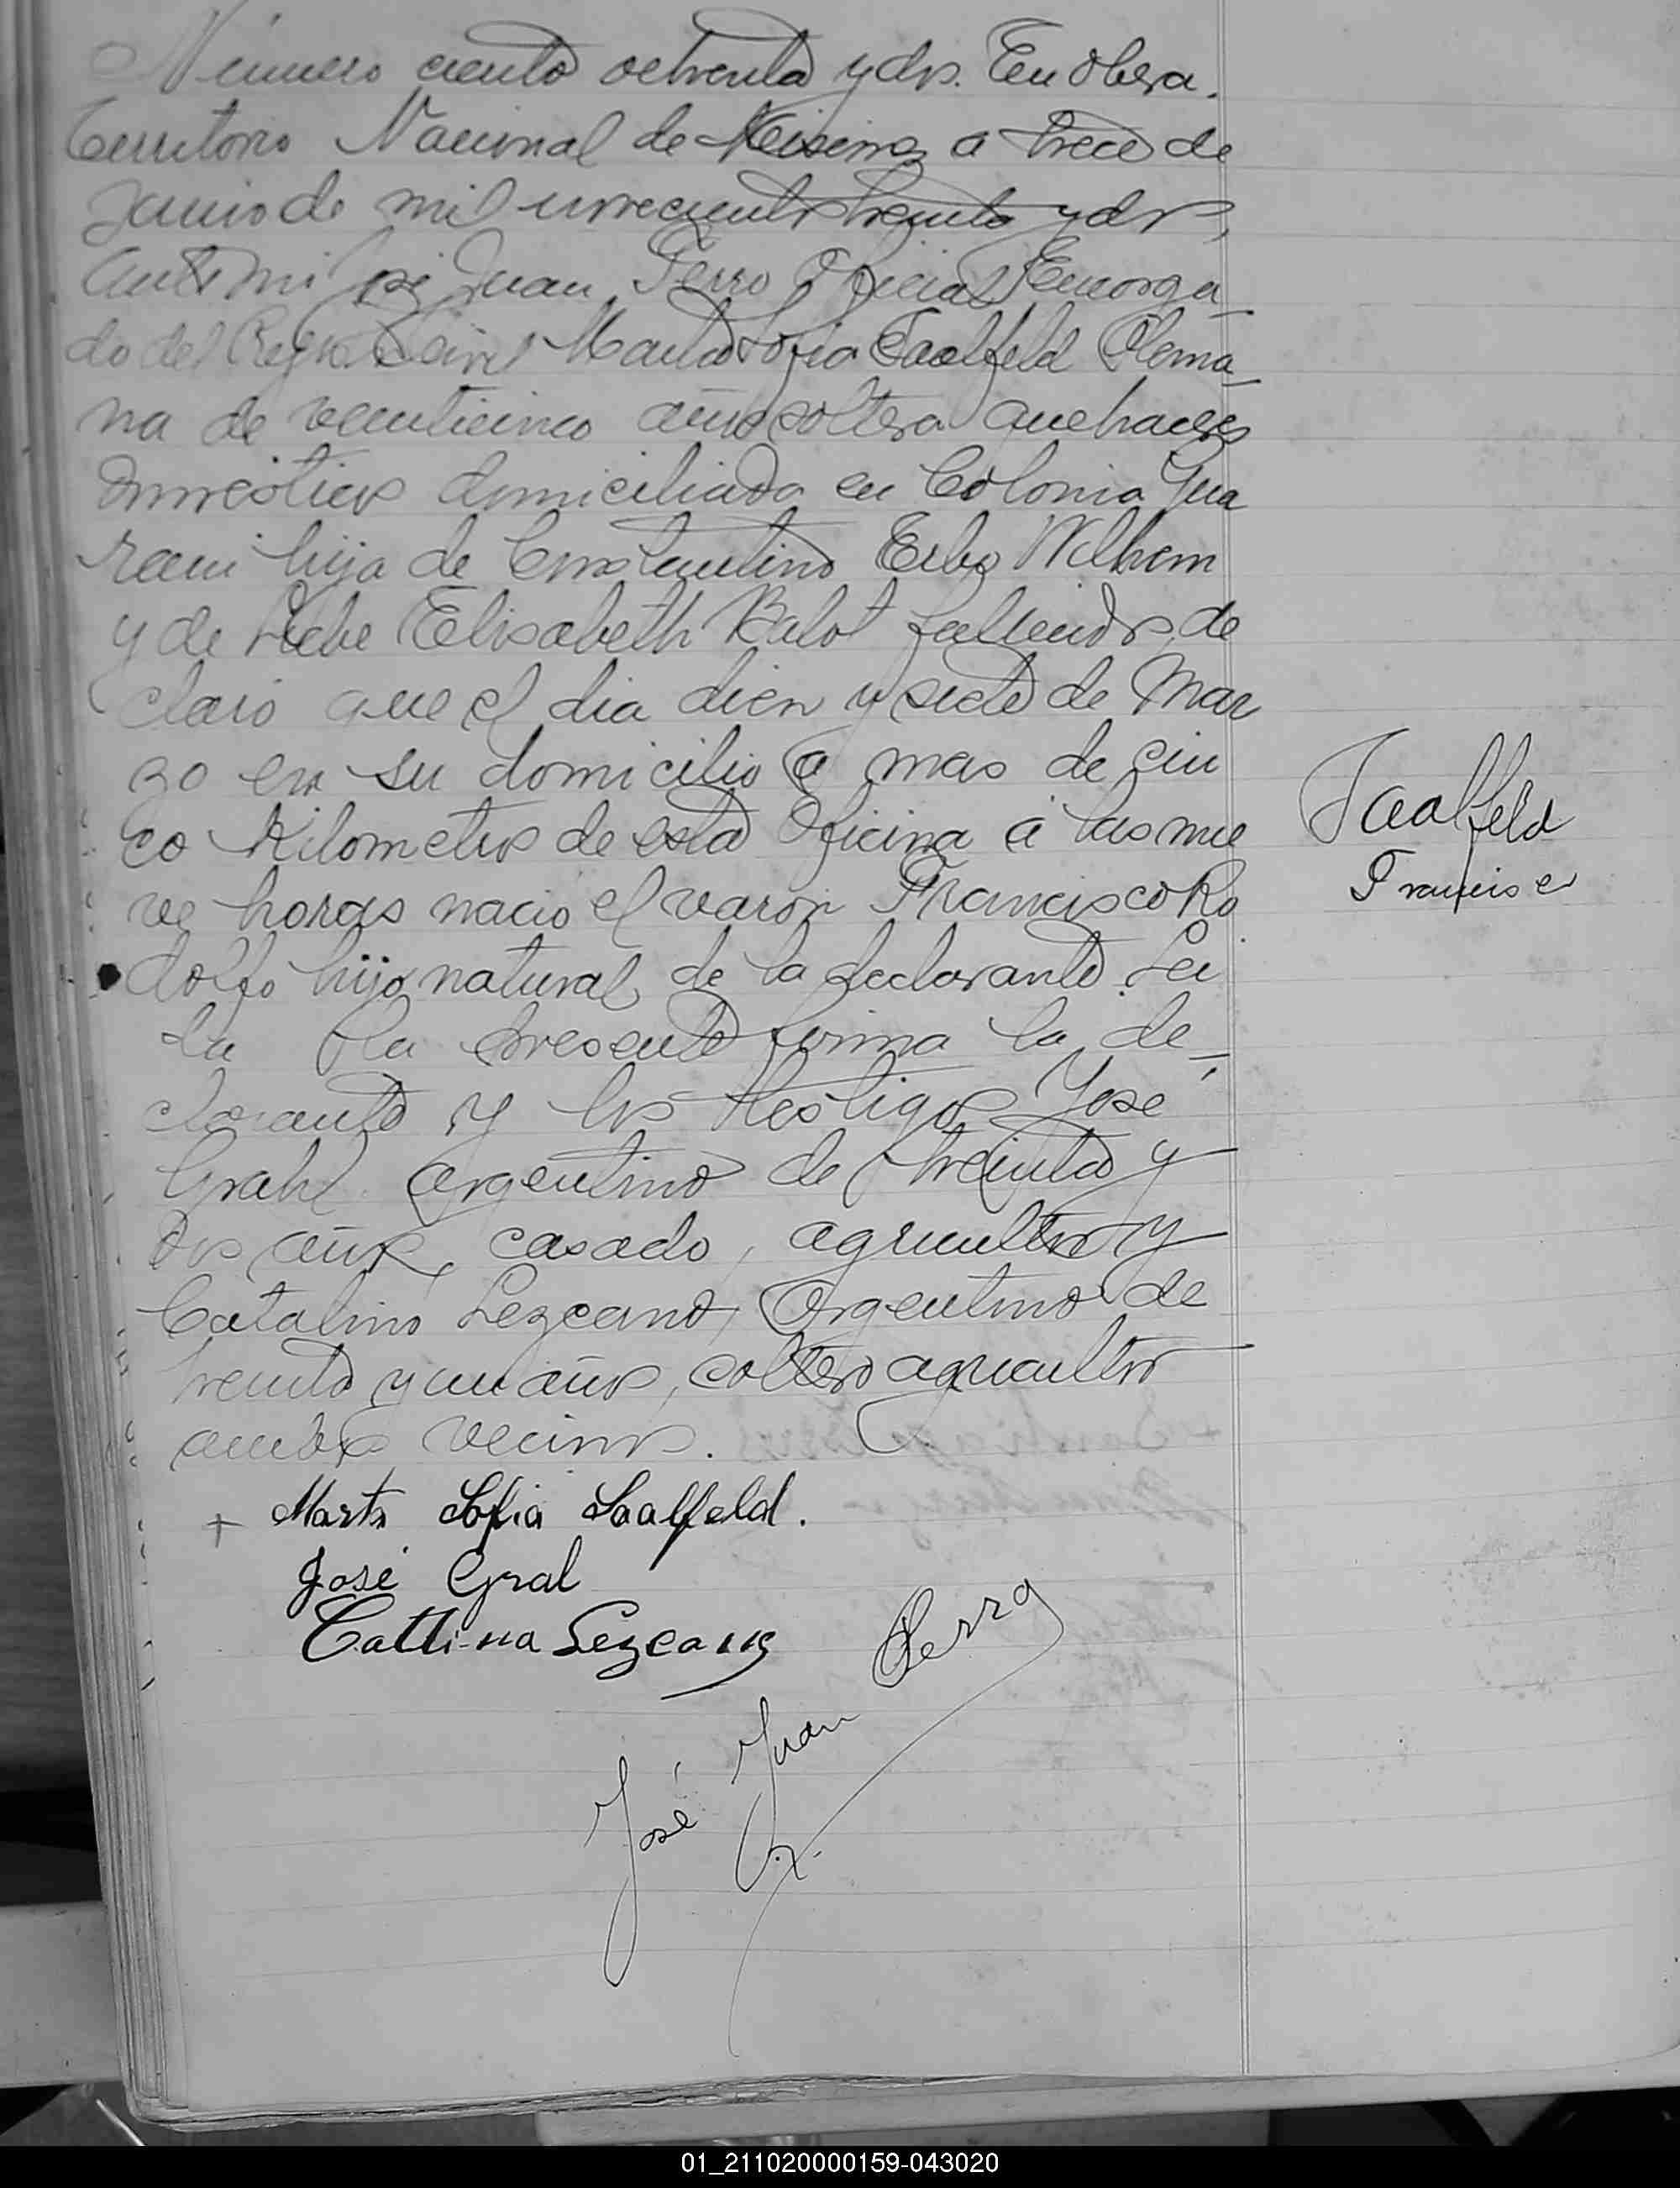 Número ciento ochenta y dos. En Obera.
Territorio Nacional de Misiones a trece de
Junio de mil novecientos treinta y dos,
ante mi José Juan Ferro Oficial Encarga-
do del Regis. Civil Marta Sofia Saalfeld Alema-
na de veinticinco años soltera quehaceres
domesticos domiciliada en Colonia Gua
rani hija de Constantino Erbo Wilhem
y de Liebe Elisabeth Balot fallecidos, de
claró que el dia diez y siete de Mar
zo en su domicilio a mas de cin
co Kilometros de esta Oficina á las nue
ve horas nació el varón Francisco Ro
dolfo hijo natural de la declarante. Lei
da la presente firma la de-
clarante y los testigos Jose
Grahl argentino de treinta y
dos años, casado, agricultor y
Catalino Lezcano, Argentino de
treinta y un años, soltero agricultor
ambos vecinos.
Saalfeld
Francisco
+ Marta Sofia Saalfeld.
José Gral
Cattina Lezcano
José Juan Ferro
01_211020000159-043020